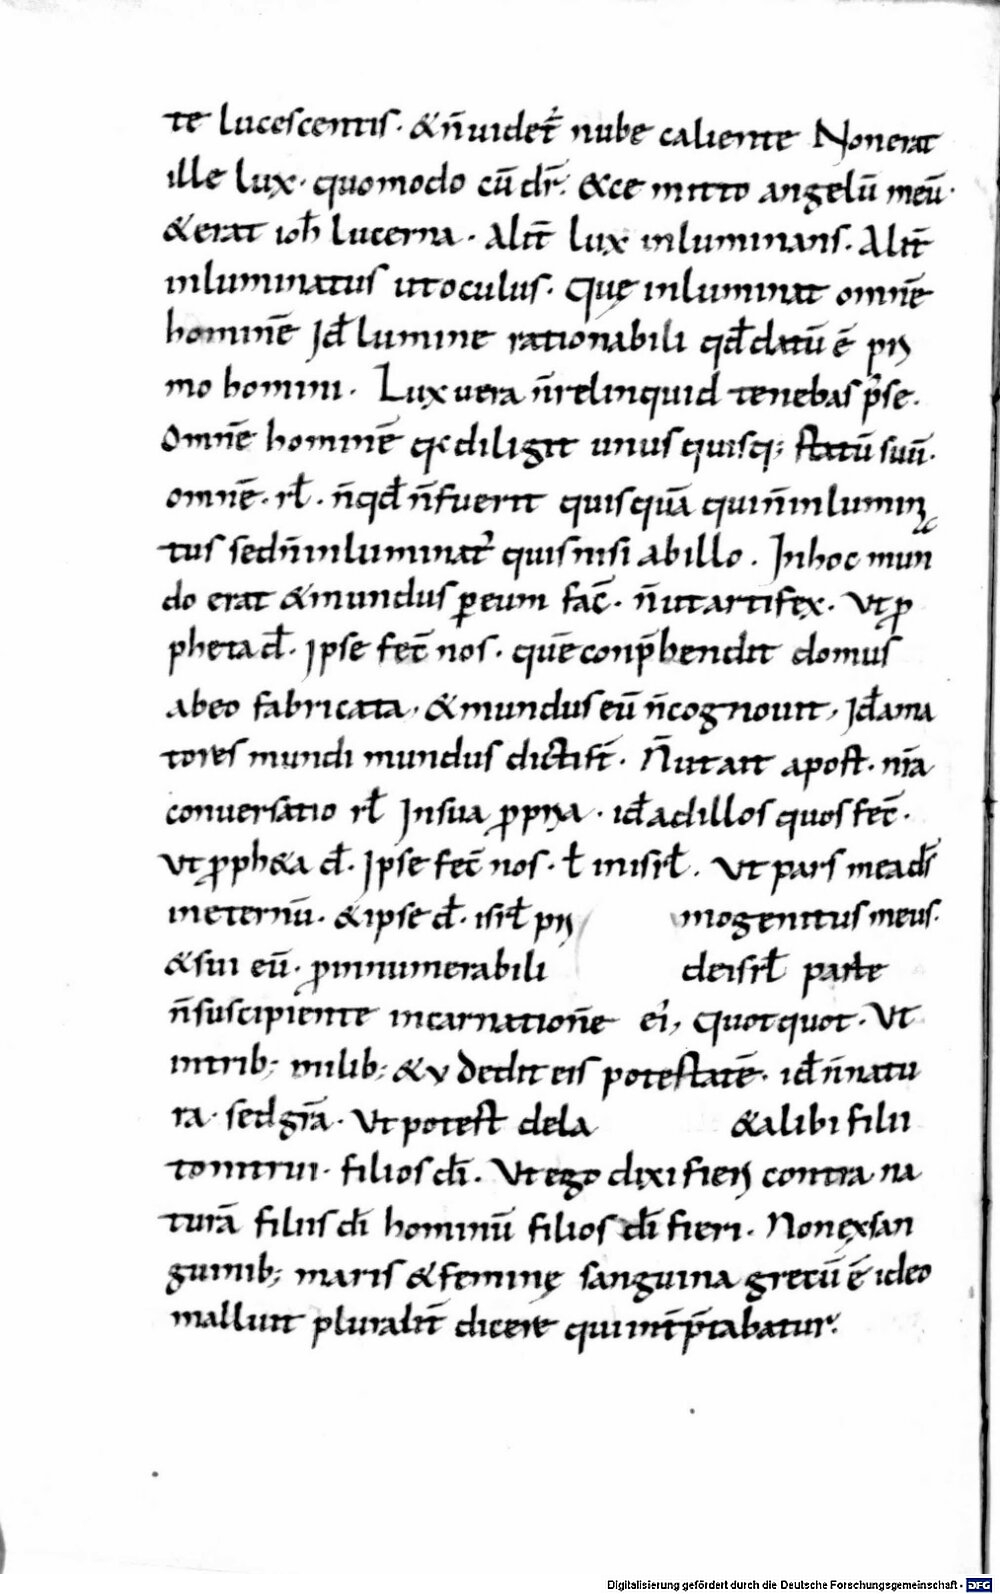 te lucescentis. &n̄uidet᷑ nube caliente Nonerat
ille lux. quomodo cū dr̄. &ce mitto angelū meū.
&erat ioh̄ lucerna. Alit̄ lux inluminans. Alit̄
inluminatus utoculus. Quę inluminat omnē
hominē Id̄ lumine rationabili qd̄datū ē pri
mo homini. Lux uera n̄relinquid tenebas p̄se.
Omnē hominē q̄ diligit unusquisq; statū suū.
omnē. rł. n̄qd̄ n̄fuerit quisquā quin̄inlumina
tus sedn̄inluminat᷑ quisnisi abillo. Inhoc mun
do erat &mundus ꝑeum fac̄. n̄utartifex. Vt ꝓ
pheta d̄. Ipse fec̄ nos. quēconp̄hendit domus
abeo fabricata, &mundus eū n̄cognouit, Id̄ama
tores mundi mundus dictisr̄. N̄utait apost. nr̄a
conuersatio rł Insua ꝓpria. id̄adillos quosfec̄.
Vt ꝓph&a d̄. Ipse fec̄ nos. ł inisrł. Vt pars meads̄
ineternū. &ipse d̄. isrł pri mogenitus meus.
&sui eū. ꝓinnumerabili deisrł parte
n̄suscipiente incarnationē ei, quotquot. Vt
intrib; milib; &v dedit eis potestatē. id̄n̄natu
ra. sed gr̄a. Vt potest dela &alibi filii
tonitrui. filios dī. Vt ego dixi fieri contra na
turā filiis dī hominū filios dī fieri. Nonexsan
guinib; maris &feminę sanguina grecū ē ideo
malluit pluralit̄ dicere quiint̄p̄tabatur.
Digitalisierung gefördert durch die Deutsche Forschungsgemeinschaft - DFG